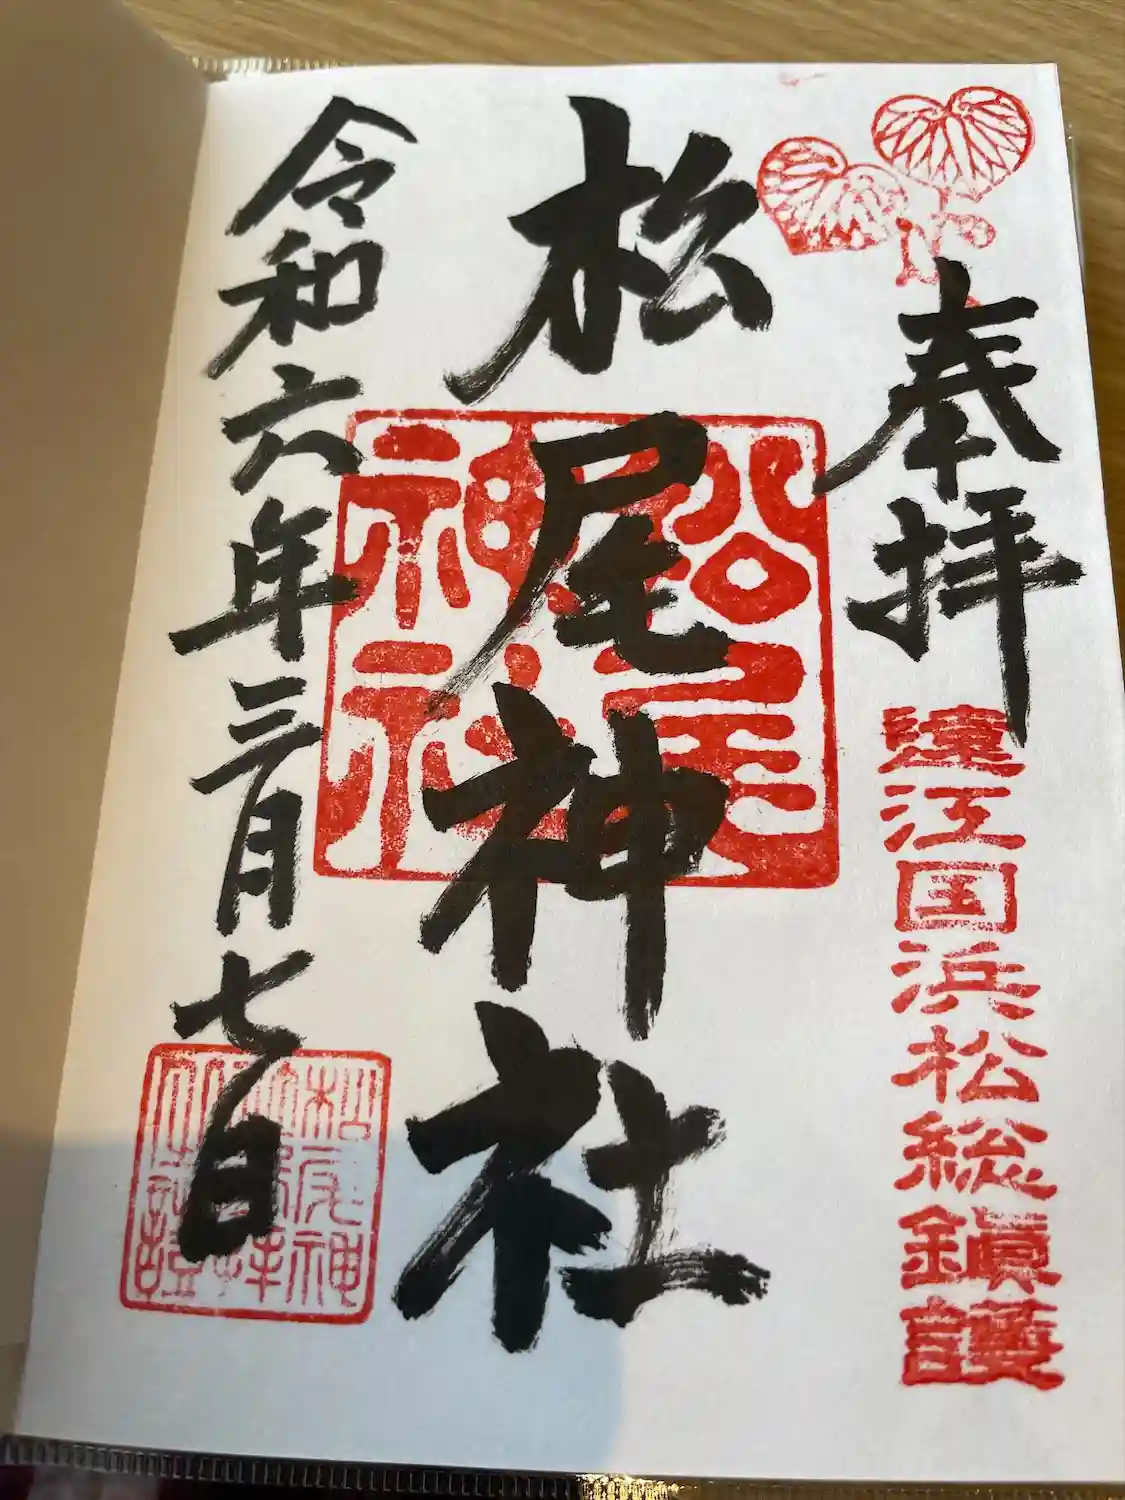 奉拝
遠江国浜松総鎮護
松尾神社
松尾
神社
令和六年三月七日